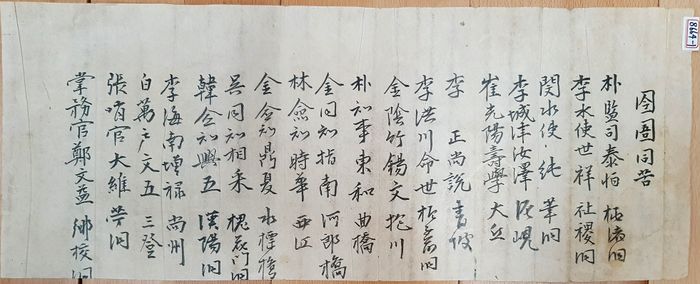 囹圄同苦
朴監司泰恒
李水使世祥 社稷洞
閔水使 純 筆洞
李城津汝澤 泥峴
崔光陽壽學 大丘
李 正尚說
李洪川命世
金陰竹錫文 抱川
朴知事東和 曲橋
金同知指南 河郎橋
林僉知時華 西江
金僉知鼎夏 水標橋
吳同知相采 槐花門洞
韓僉知興五 漢陽洞
李海南增祿 尚州
白萬戶文五 三登
張哨官大維 茅洞
掌務官鄭文益 鄉校洞
8664-1